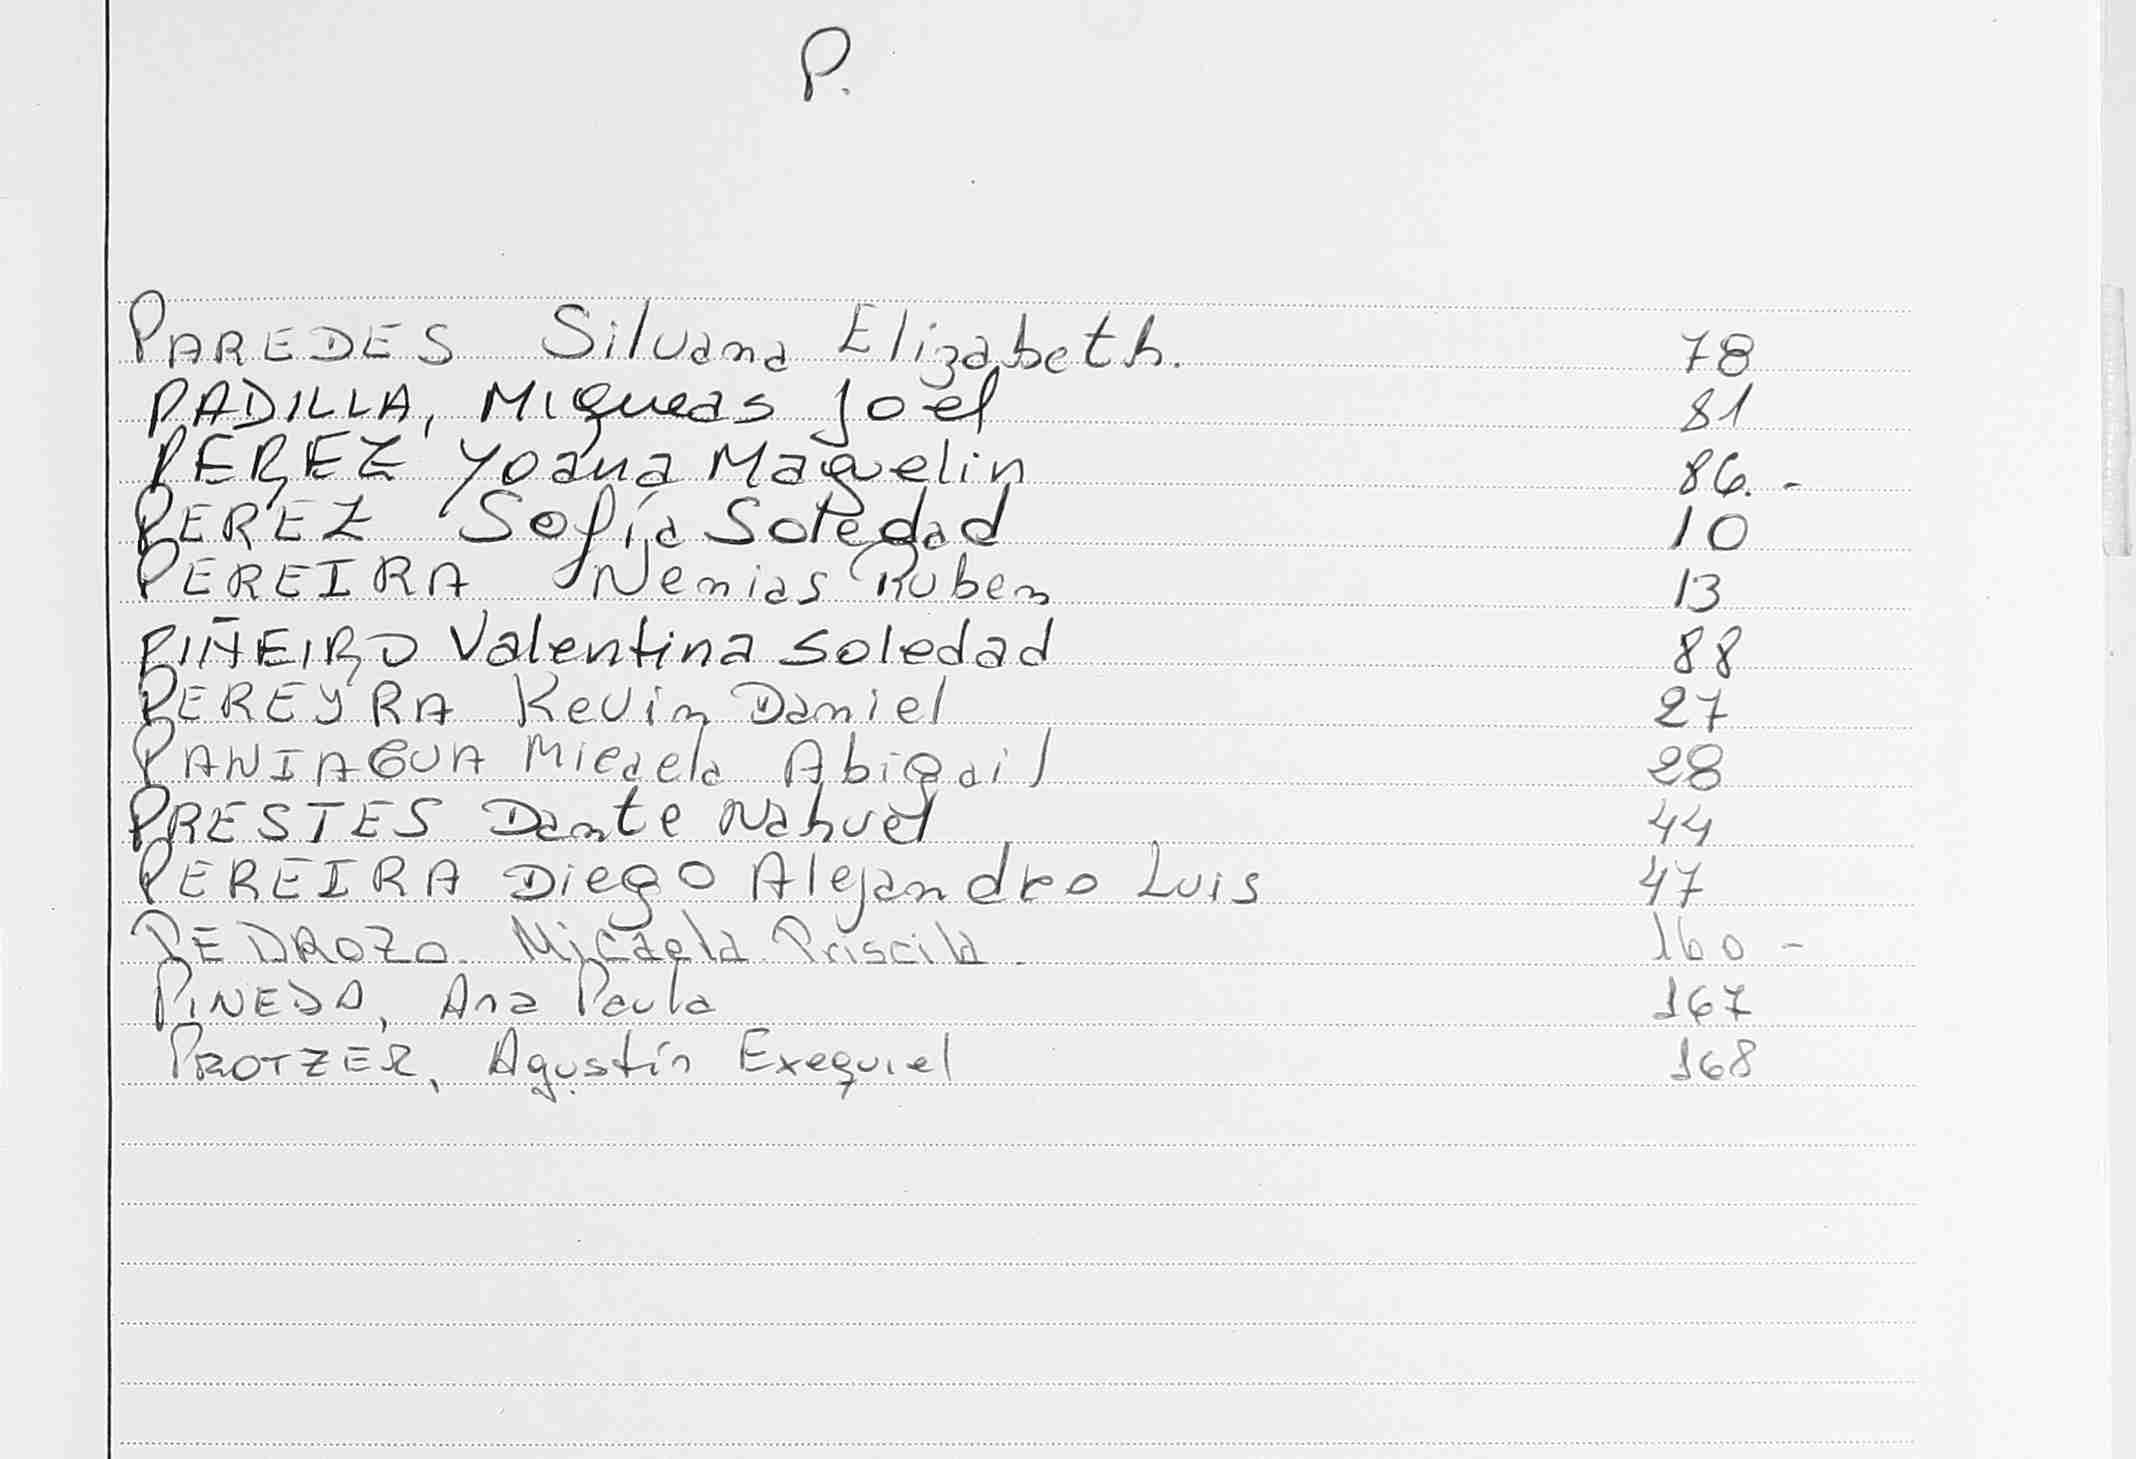 P.
PAREDES Silvana Elizabeth. 78
PADILLA, Miqueas Joel 81
PEREZ Yoana Maquelin 86. -
PEREZ Sofía Soledad 10
PEREIRA Nemias Ruben 13
PIÑEIRO Valentina Soledad 88
PEREYRA Kevin Daniel 27
PANIAGUA Micaela Abigail 28
PRESTES Dante Nahuel 44
PEREIRA Diego Alejandro Luis 47
PEDROZO. Micaela Priscila. 160 -
PINEDA, Ana Paula 167
PROTZER, Agustín Exequiel 168